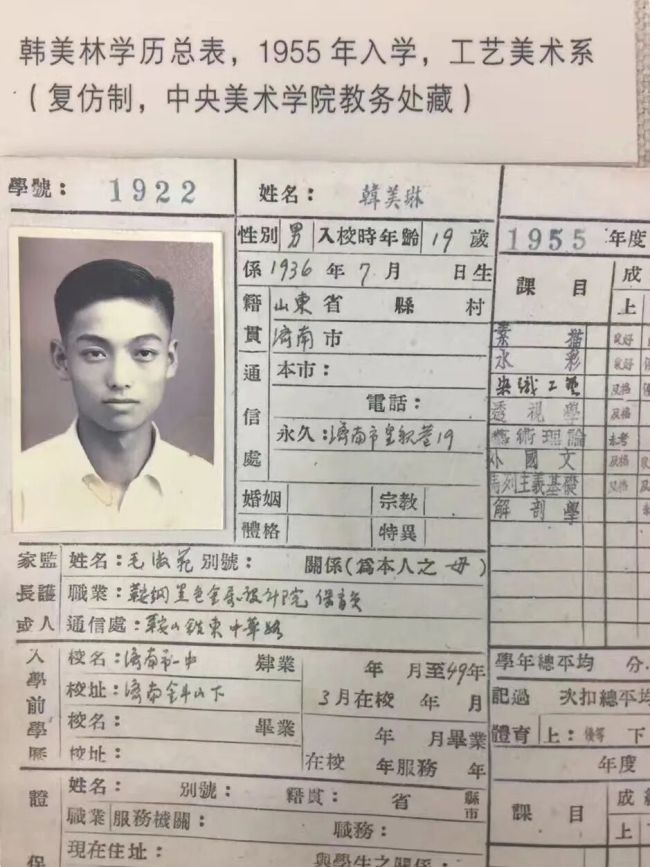 韩美林学历总表，1955年入学，工艺美术系
（复仿制，中央美术学院教务处藏）
學號： 1922 姓名： 韓美琳
性别 男 入校時年齡 19 歲
係 1936 年 7 月 日生
籍貫 山東 省 縣 村
濟南 市
通信處 本市：
電話：
永久：濟南市皇親巷19
婚姻 宗教
體格 特異
1955 年度
課 目 成
上
素 描 良好
水 彩 良好
染織工藝 及格
透視學 及格
藝術理論 未考
外國文 及格
馬列主義基礎 及格
解剖學
學年總平均 分.
記過 次扣總平均
體育 上： 下
年度
課 目 成績
上
家長或 監護人 姓名：毛淑苑 别號： 關係（爲本人之 母）
職業：鞍鋼黑色金属設計院 保育員
通信處：鞍山鉄東中華路
入學前學歷 校名：濟南市一中 肄業 年 月至49年
校址：濟南 山下 3月在校 年 月
校名： 畢業 年 月畢業
校址： 在校 年服務 年
證 保 姓名： 别號： 籍貫： 省 縣市
職業 服務機關： 職務：
現在住址： 與學生之關係：